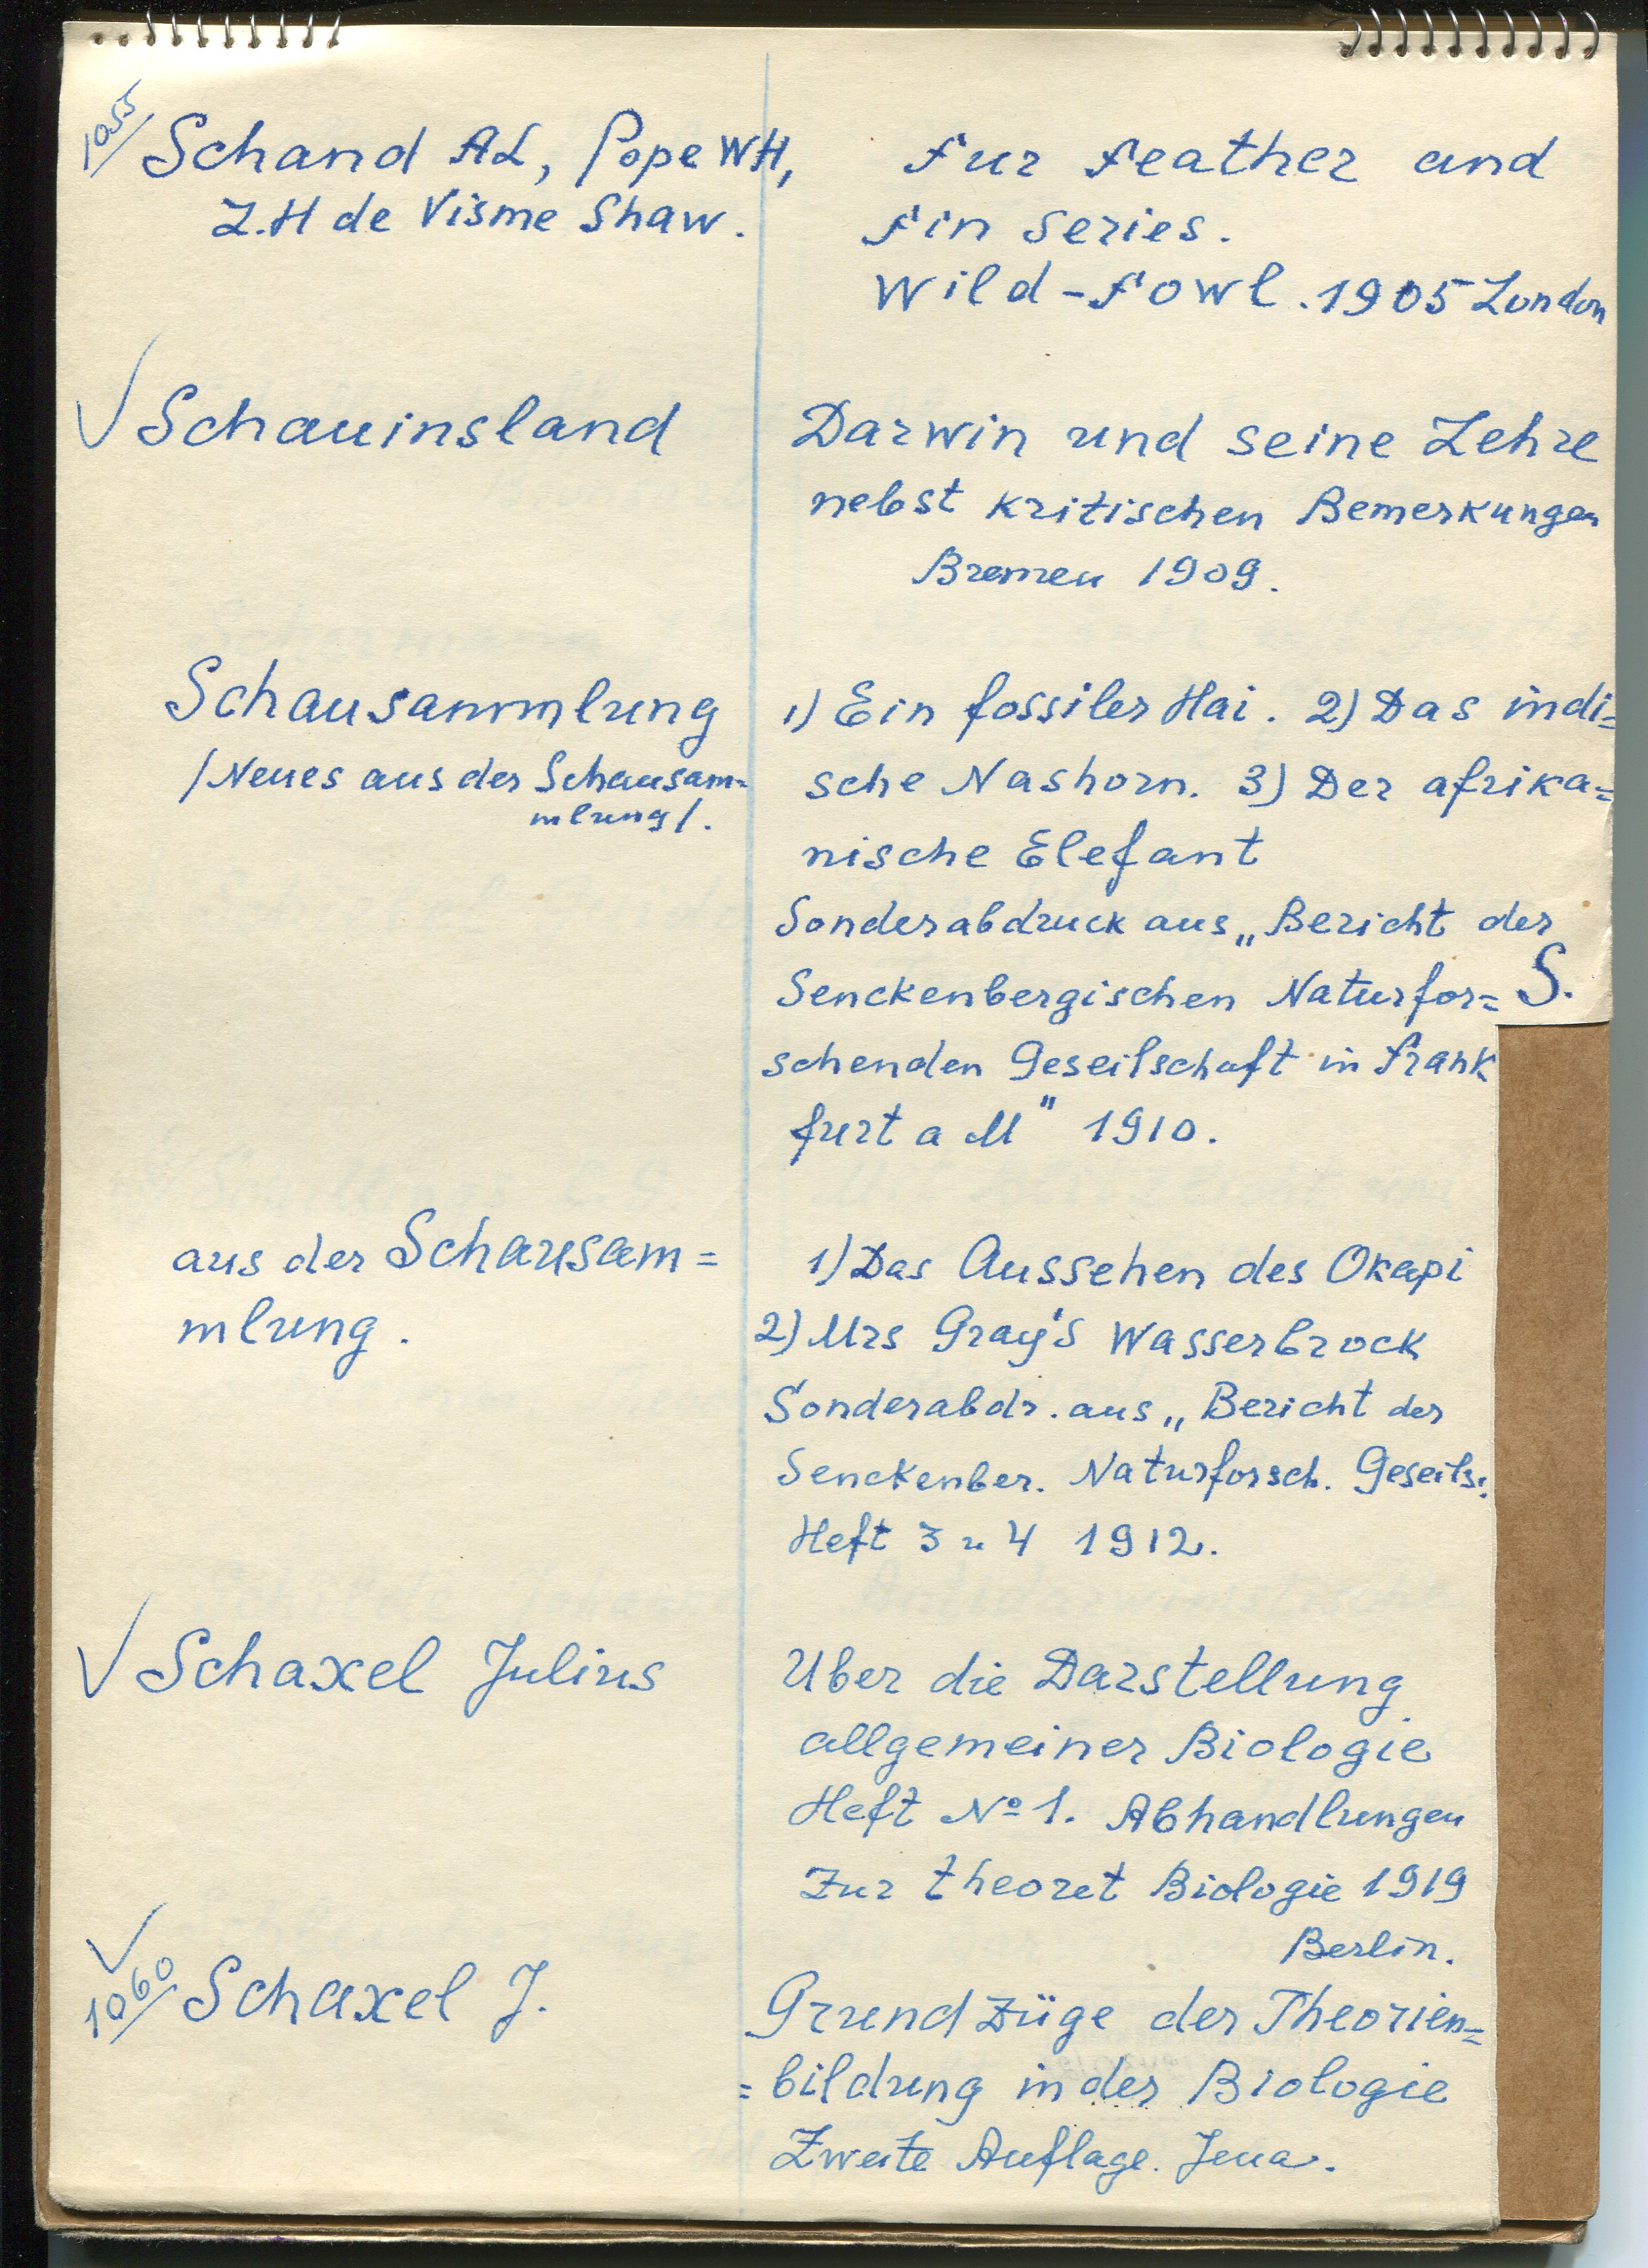 1055 Schand AL, Pope WH,
L.H de Visme Shaw.
Fur Feather and
Fin Series.
Wild-Fowl. 1905 London
√ Schauinsland
Darwin und seine Lehre
nebst kritischen Bemerkungen
Bremen 1909.
Schausammlung
/Neues aus der Schausam=
mlung/.
1) Ein fossiler Hai. 2) Das indi=
sche Nashorn. 3) Der afrika=
nische Elefant
Sonderabdruck aus „Bericht der
Senckenbergischen Naturfor=
S.
schenden Geseilschaft in Frank
furt a M" 1910.
aus der Schausam=
mlung.
1) Das Aussehen des Okapi
2) Mrs Gray's Wasserbrock
Sonderabdr. aus „Bericht der
Senckenber. Naturforsch. Geseils.
Heft 3 u 4 1912.
√ Schaxel Julius
Uber die Darstellung
allgemeiner Biologie
Heft No 1. Abhandlungen
zur theoret Biologie 1919
Berlin.
√
1060 Schaxel J.
Grundzüge der Theorien=
=bildung in der Biologie
Zweite Auflage. Jena.